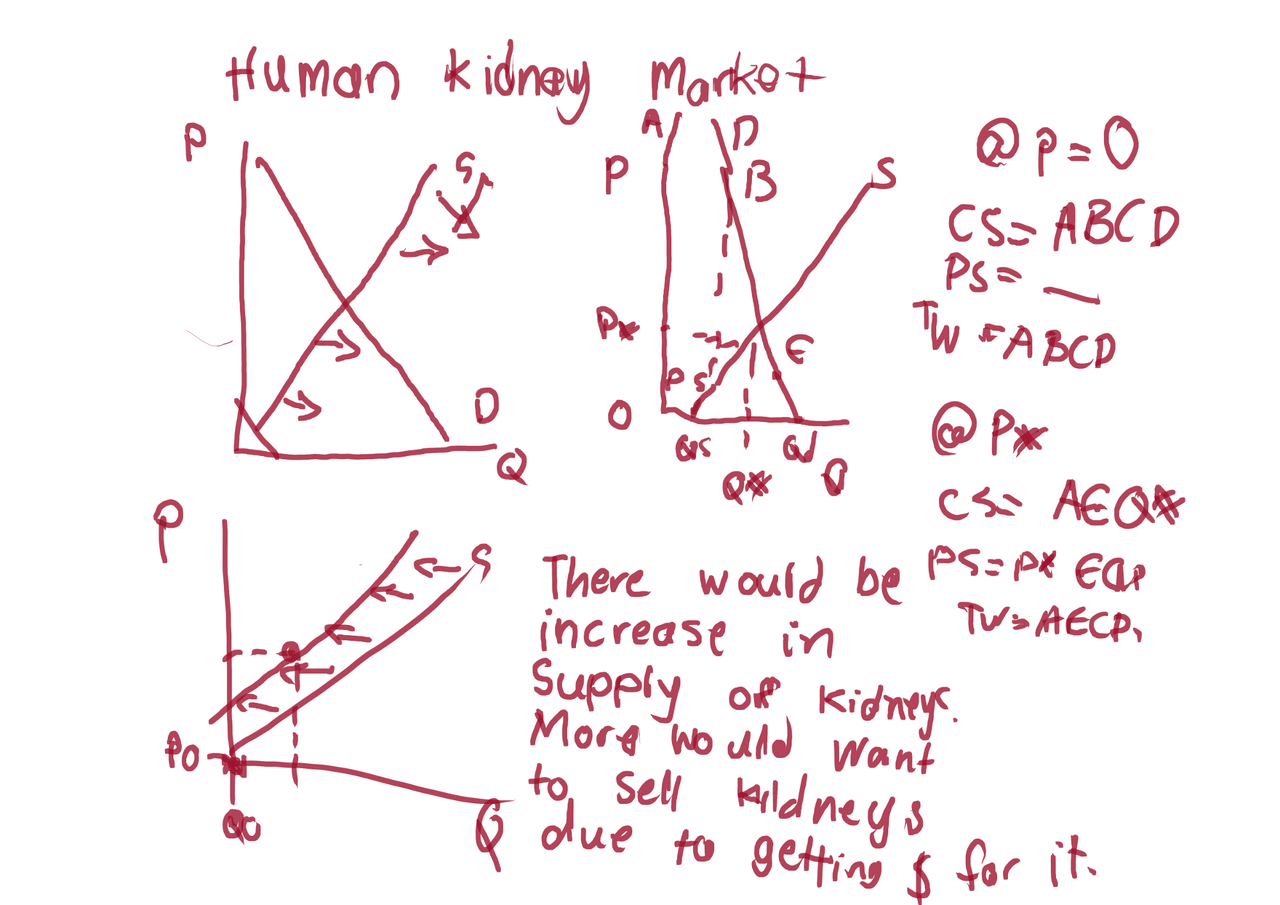 Human kidney Market
P
S
D
Q
A
D
P
B
S
P*
E
P S'
O
Qs
Qd
Q*
Q
@ P = 0
CS = ABCD
PS = __
TW = ABCD
@ P*
CS = AEQ*
PS = P*
TW =
P
S
P0
Q0
Q
There would be
increase in
Supply of kidneys.
More would want
to sell kidneys
due to getting $ for it.